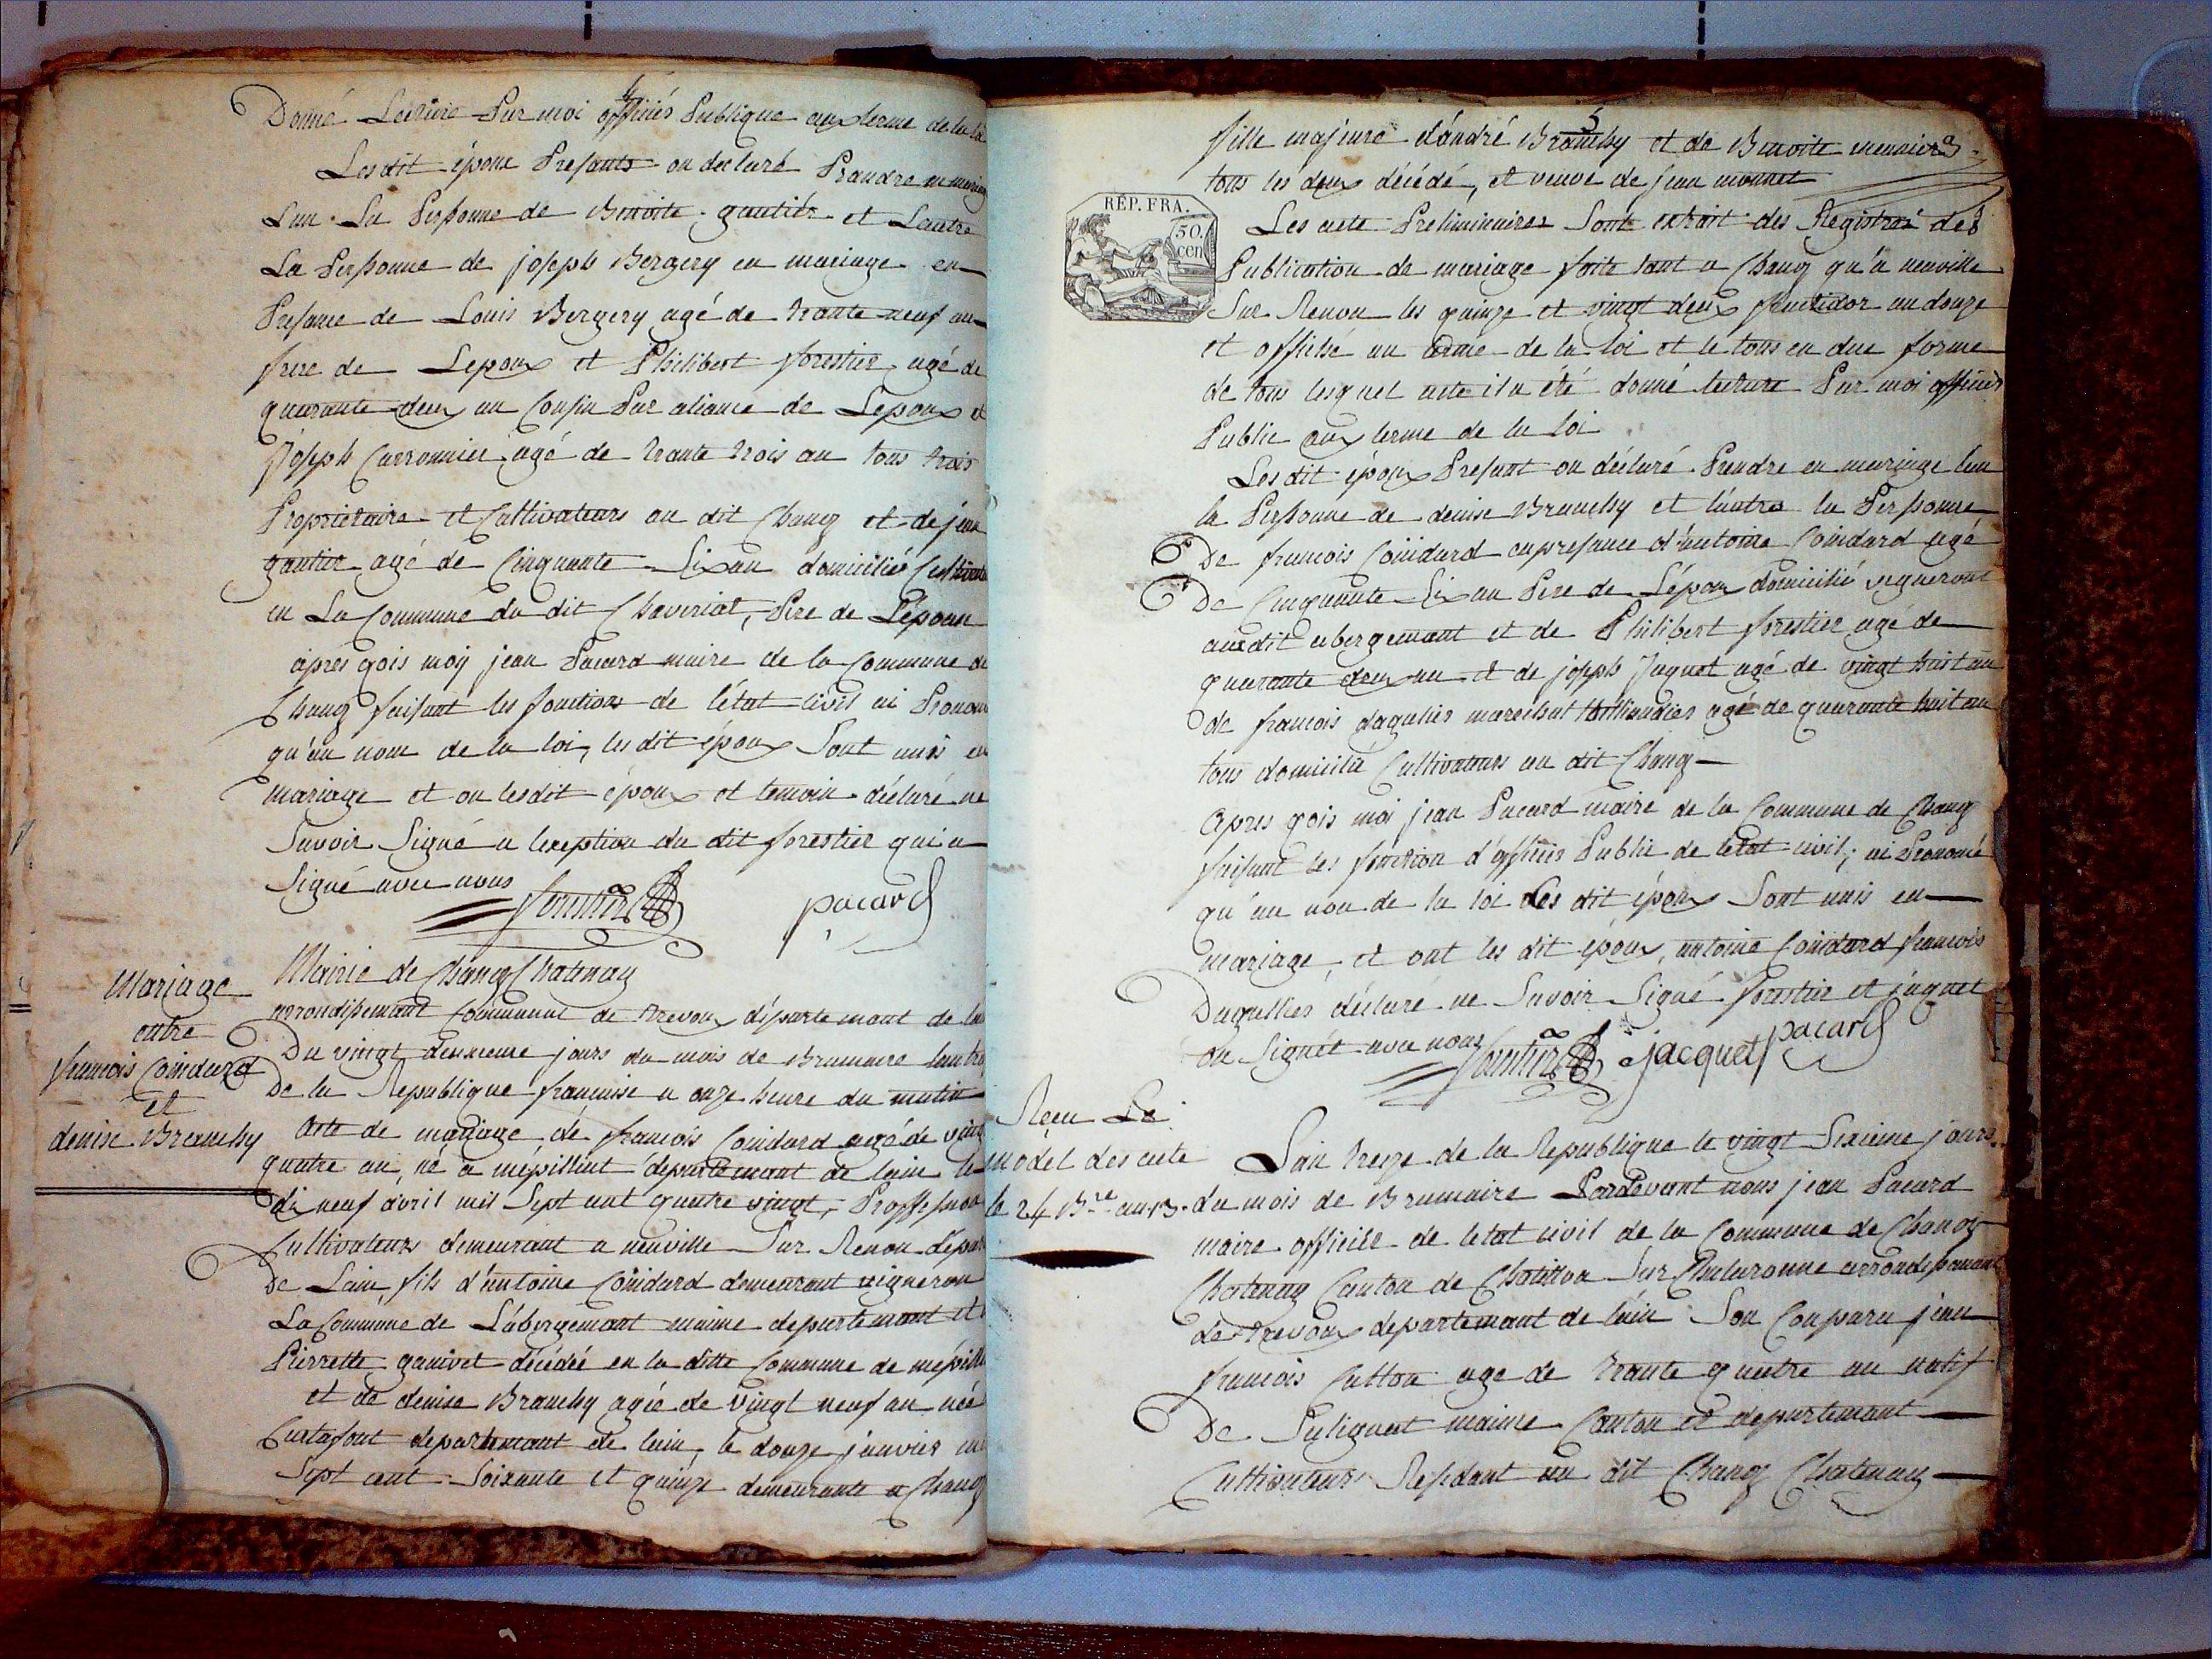 4
Donné Lecture Par moi officiés Publique aux terme de la loi
Les dit époux Presants on declaré Prandre en mariage
Lun La Personne de Benoite gautiér et Lautre
La Personne de joseph Bergery en mariage en
Presance de Louis Bergery agé de trante neuf an
frere de Lepoux et Philibert forestier agé de
quarante deux an Cousin Par aliance de Lepoux et
Joseph Carronnier agé de trante trois an tous trois
Proprietaire et Cultivateurs au dit Chanoz et de jean
gautier agé de Cinquante Six an domicilié Cultivate
en La Commune du dit Chaveriat, Pere de Lépouse
aprés qois moy jean Pacard maire de la Commune de
Chanoz faisant les fonctions de létat civil ai Prononcé
qu'au nom de la loi, les dit époux Sont unis en
mariage et on lesdit époux et temoin déclaré ne
Savoir Signé a lexeption du dit forestier qui a
Signé avec nous
forestier pacard
Mariage
entre
francois Coindard
et
denise Branchy
Mairie de Chanoz Chatenay
arrondisemant Communal de trevoux départemant de lain
Du vingt deuxieme jours du mois de Brumaire lan treize
De la Republique française a onze heure du matin
Acte de mariage de francois Coindard agé de vingt
quatre an, né a mépilliat départemant de lain le
dix neuf avril mil Sept cent quatre vingt, Proffession
Cultivateurs demeurant a neuville Sur Renon dépar
De Lain fils d'antoine Coindard demeurant vigneron
La Commune de Labergemant maime departemant et
Pierrette ganivet décédée en la ditte Commune de mépilli
et de denise Branchy agée de vingt neuf an née
Curtafont departemant de lain, le douze janvier mil
Sept cent Soixante et quinze demeurante a Chanoz
5
fille majeure d'andré Branchy et de Benoite meunier
tous les deux décédé, et veuve de jean monnet
RÉP. FRA.
50.
cen
Les acte Preliminaires Sont extrait des Registres des
Publication de mariage faite tant a Chanoz qu'a neuville
Sur Renon les quinze et vingt deux fructidor an douze
et affiché au terme de la loi et le tous en due forme
de tous lesquel acte il a été donné lecture Par moi officiér
Public aux terme de la loi
Les dit époux Presant on déclaré Prendre en mariage lun
la Personne de denise Branchy et lautre la Personne
De francois Coindard en presance d'antoine Coindard agé
De Cinquante Six an Pere de Lépoux domicilié vigneront
audit abergemant et de Philibert forestier agé de
quarante deux an et de joseph Jaquet agé de vingt huit an
de francois dagalier marechal taillandier agé de quarante huit an
tous domicilié Cultivateurs au dit Chanoz
Apres qois moi jean Pacard maire de la Commune de Chanoz
faisant les fonction d'officiér Public de létat civil, ai Prononcé
qu'au non de la loi les dit époux Sont unis en
mariage, et ont les dit époux, antoine Coindard francois
Dagallier déclaré ne Savoir Signé forestier et jaquet
on Signét avec nous
forestier jacquet pacard
Reçu Le
model des acte
le 24 Bre an 13.
Lan treize de la Republique le vingt Sixieme jours
du mois de Brumaire Pardevant nous jean Pacard
maire officiér de létat civil de la Commune de Chanoz
Chatenay Canton de Chatillon Sur Chalaronne arrondisemant
de trevoux departemant de lain Son Conparu jean
francois Catton age de trante quatre an natif
De Suligneat maime Canton et departemant
Cultivateurs Residant au dit Chanoz Chatenay